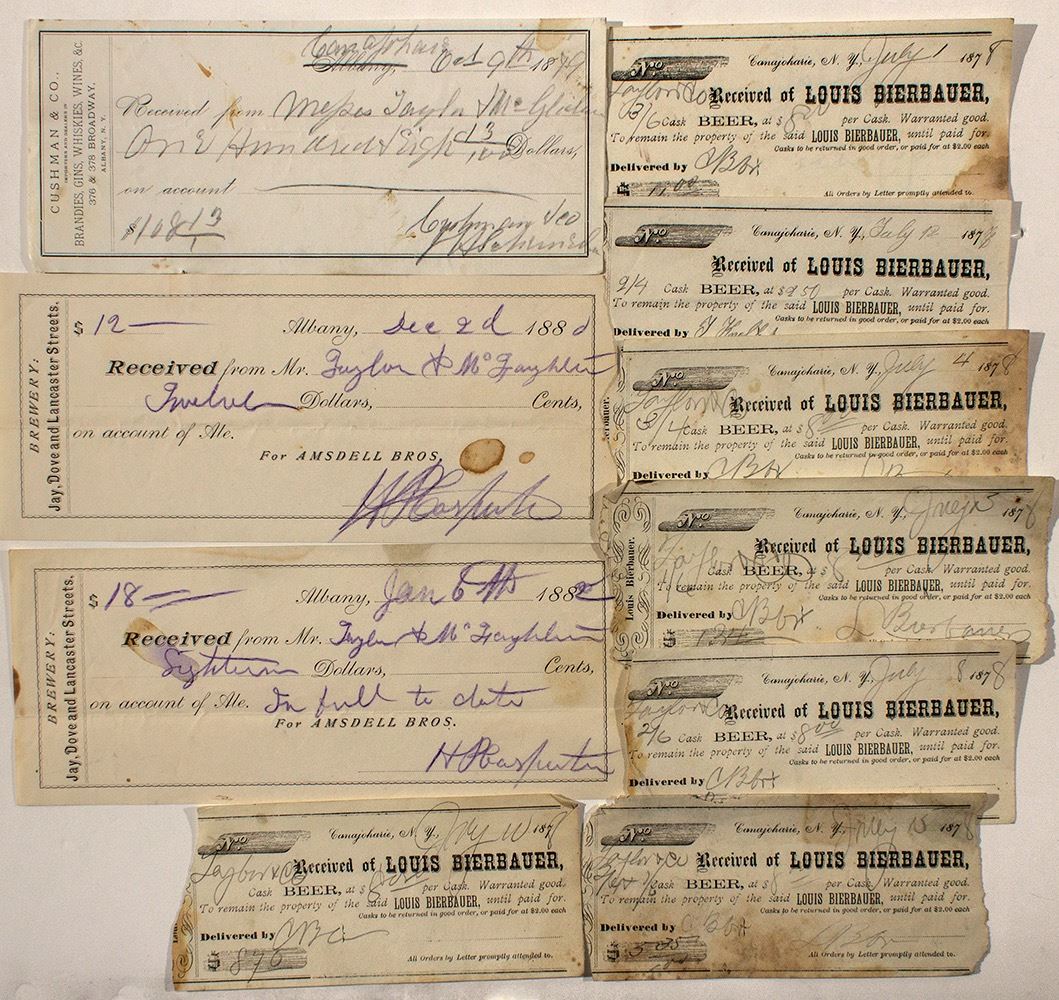 CUSHMAN & CO.,
IMPORTERS AND DEALERS IN
BRANDIES, GINS, WHISKIES, WINES, &c.
376 & 378 BROADWAY,
ALBANY, N. Y.
Canajoharie
Albany, Oct 9th 1879
Received from Messrs Taylor & McGlaclin
One Hundred & Eigh 13/100 Dollars,
on account
$108 13
Cushman & Co
BREWERY:
Jay, Dove and Lancaster Streets.
$ 12 — Albany, Dec 2d 1880
Received from Mr. Taylor & McLaughlin
Twelve Dollars, Cents,
on account of Ale.
For AMSDELL BROS.
H P Carpenter
BREWERY:
Jay, Dove and Lancaster Streets.
$ 18 — Albany, Jan 6th 1882
Received from Mr. Taylor & McLaughlin
Eighteen Dollars, Cents,
on account of Ale. In full to date
For AMSDELL BROS.
H P Carpenter
No Canajoharie, N. Y., July 1 1878
Taylor & Co Received of LOUIS BIERBAUER,
3/6 Cask BEER, at $ 8 00 per Cask. Warranted good.
To remain the property of the said LOUIS BIERBAUER, until paid for.
Casks to be returned in good order, or paid for at $2.00 each
Delivered by CBbx
$ All Orders by Letter promptly attended to.
No Canajoharie, N. Y., July 12 1878
Received of LOUIS BIERBAUER,
2/4 Cask BEER, at $ 50 per Cask. Warranted good.
To remain the property of the said LOUIS BIERBAUER, until paid for.
Casks to be returned in good order, or paid for at $2.00 each
Delivered by
No Canajoharie, N. Y., July 4 1878
Taylor & Co Received of LOUIS BIERBAUER,
3/4 Cask BEER, at $ 8 per Cask. Warranted good.
To remain the property of the said LOUIS BIERBAUER, until paid for.
Casks to be returned in good order, or paid for at $2.00 each
Delivered by CBbx
Louis Bierbauer.
No Canajoharie, N. Y., July 3 1878
Received of LOUIS BIERBAUER,
Cask BEER, at $ 8 per Cask. Warranted good.
To remain the property of the said LOUIS BIERBAUER, until paid for.
Casks to be returned in good order, or paid for at $2.00 each
Delivered by CBbx L Bierbauer
$
No Canajoharie, N. Y., July 8 1878
Taylor & Co Received of LOUIS BIERBAUER,
2/6 Cask BEER, at $ 8 00 per Cask. Warranted good.
To remain the property of the said LOUIS BIERBAUER, until paid for.
Casks to be returned in good order, or paid for at $2.00 each
Delivered by CBbx
No Canajoharie, N. Y., July 10 1878
Taylor & Co Received of LOUIS BIERBAUER,
Cask BEER, at $ 8 per Cask. Warranted good.
To remain the property of the said LOUIS BIERBAUER, until paid for.
Casks to be returned in good order, or paid for at $2.00 each
Delivered by
$ All Orders by Letter promptly attended to.
No Canajoharie, N. Y., July 15 1878
Taylor & Co Received of LOUIS BIERBAUER,
Cask BEER, at $ 8 per Cask. Warranted good.
To remain the property of the said LOUIS BIERBAUER, until paid for.
Casks to be returned in good order, or paid for at $2.00 each
Delivered by CBbx
$ All Orders by Letter promptly attended to.